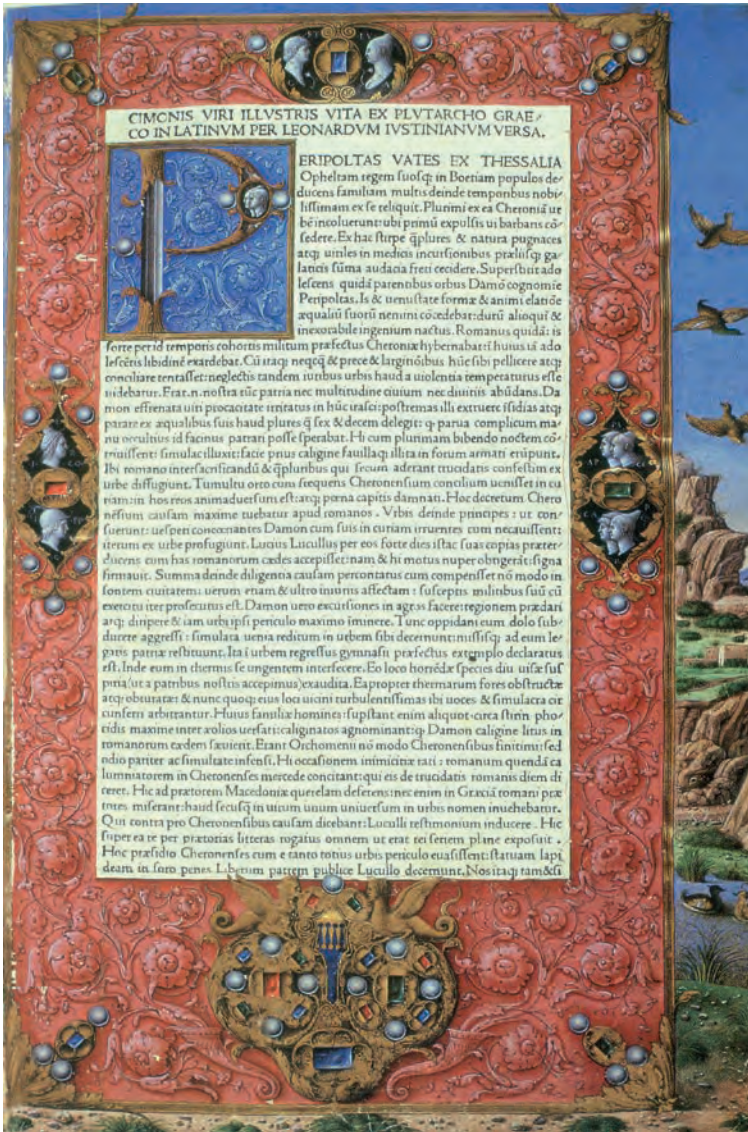 CIMONIS VIRI ILLVSTRIS VITA EX PLVTARCHO GRAE/
CO IN LATINVM PER LEONARDVM IVSTINIANVM VERSA.
PERIPOLTAS VATES EX THESSALIA
Opheltam regem suosq; in Boetiam populos de/
ducens familiam multis deinde temporibus nobi/
lissimam ex se reliquit. Plurimi ex ea Cheroniā ur
bē incoluerunt: ubi primū expulsis ui barbaris cō/
sedere. Ex hac stirpe q̄plures & natura pugnaces
atq; uiriles in medicis incursionibus præliisq; ga/
laticis sūma audacia freti cecidere. Superfuit ado
lescens quidā parentibus orbus Damō cognomie
Peripoltas. Is & uenustate formæ & animi elatiōe
æqualiū suorū nemini cōcedebat: durū alioqui &
inexorabile ingenium nactus. Romanus quidā: is
forte per id temporis cohortis militum præfectus Cheroniæ hybernabat: ī huius iā ado
lescētis libidinē exardebat. Cū itaq; neqcq̄ & prece & largitiōibus hūc sibi pellicere atq;
conciliare tentasset: neglectis tandem iuribus urbis haud a uiolentia temperaturus esse
uidebatur. Erat .n. nostra tūc patria nec multitudine ciuium nec diuitiis abūdans. Da
mon effrenata uiri procacitate irritatus in hūc irasci: postremas illi extruere īsidias atq;
parare ex æqualibus suis haud plures q̄ sex & decem delegit: q parua complicum ma/
nu occultius id facinus patrari posse sperabat. Hi cum plurimam bibendo noctem cō/
triuissent: simulac illuxit: facie prius caligine fauillaq; illita in forum armati erūpunt.
Ibi romano inter sacrificandū & q̄pluribus qui secum aderant trucidatis confestim ex
urbe diffugiunt. Tumultu orto cum frequens Cheronensium concilium uenisset in cu
riam: in hos reos animaduersum est: atq; pœna capitis damnati. Hoc decretum Chero
nensium causam maxime tuebatur apud romanos. Vrbis deinde principes: ut con/
suerunt: uesperi concœnantes Damon cum suis in curiam irruentes cum necauissent:
iterum ex urbe profugiunt. Lucius Lucullus per eos forte dies istac suas copias præter/
ducens cum has romanorum cædes accepisset: nam & hi motus nuper obtigerāt: signa
firmauit. Summa deinde diligentia causam percontatus cum compensset nō modo in
sontem ciuitatem: uerum etiam & ultro iniuriis affectam: susceptis militibus suū cū
exercitu iter prosecutus est. Damon uero excursiones in agros facere: regionem prædari
atq; diripere & iam urbi ipsi periculo maximo iminere. Tunc oppidani eum dolo sub/
ducere aggressi: simulata uenia reditum in urbem sibi decernunt: missisq; ad eum le/
gatis patriæ restituunt. Ita ī urbem regressus gymnasii præfectus extemplo declaratus
est. Inde eum in thermis se ungentem interfecere. Eo loco horrēdæ species diu uisæ sus
piria (ut a patribus nostris accepimus) exaudita. Eapropter thermarum fores obstructæ
atq; obturatæ: & nunc quoq; eius loci uicini turbulentissimas ibi uoces & simulacra cir
cunferri arbitrantur. Huius familiæ homines: supstant enim aliquot circa stirin pho/
cidis maxime inter æolios uersati: caliginatos agnominant: q Damon caligine litus in
romanorum cædem sæuierit. Erant Orchomenii nō modo Cheronensibus finitimi: sed
odio pariter ac simultate infensi. Hi occasionem inimicitiæ rati: romanum quendā ca
lumniatorem in Cheronenses mercede concitant: qui eis de trucidatis romanis diem di
ceret. Hic ad prætorem Macedoniæ querelam deferens: nec enim in Græciā romani præ
tores miserant: haud secusq̄ in uirum unum uniuersum in urbis nomen inuehebatur.
Qui contra pro Cheronensibus causam dicebant: Luculli testimonium inducere. Hic
super ea re per prætorias litteras rogatus omnem ut erat rei seriem plane exposuit.
Hoc præsidio Cheronenses cum e tanto totius urbis periculo euasissent: statuam lapi
deam in foro penes Liberum patrem publice Lucullo decernunt. Nos itaq; tam&si